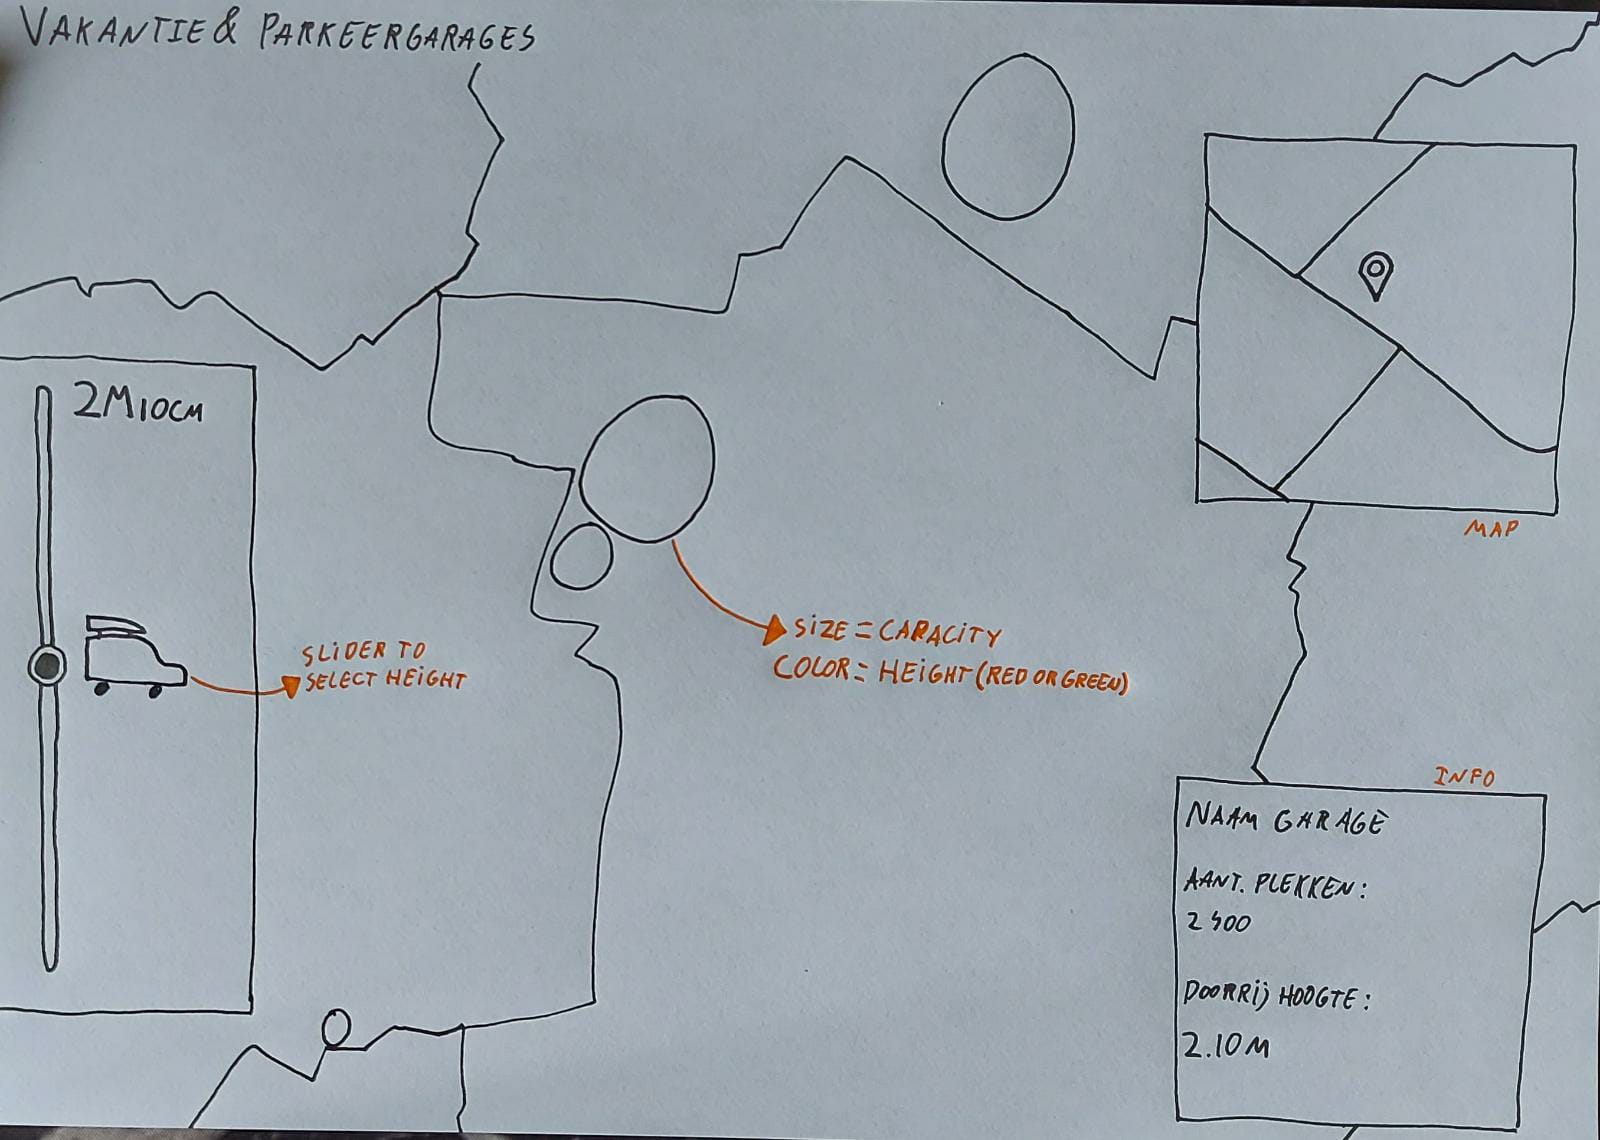 VAKANTIE & PARKEERGARAGES
2M10CM
SLIDER TO
SELECT HEIGHT
SIZE = CAPACITY
COLOR = HEIGHT (RED OR GREEN)
MAP
INFO
NAAM GARAGE
AANT. PLEKKEN:
2400
DOORRIJ HOOGTE:
2.10M